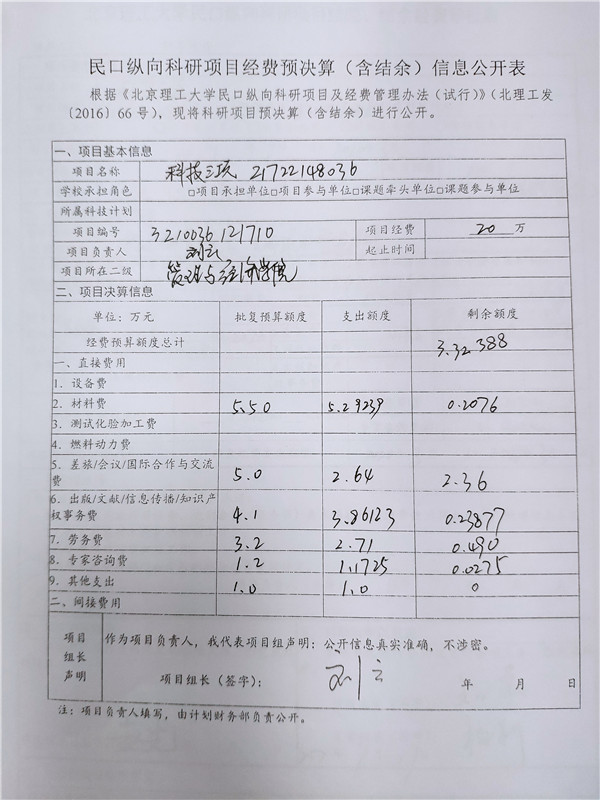 民口纵向科研项目经费预决算（含结余）信息公开表
根据《北京理工大学民口纵向科研项目及经费管理办法（试行）》（北理工发
〔2016〕66号），现将科研项目预决算（含结余）进行公开。
一、项目基本信息
项目名称 科技三项 21722148036
学校承担角色 □项目承担单位□项目参与单位□课题牵头单位□课题参与单位
所属科技计划
项目编号 3210036121710 项目经费 20 万
项目负责人 刘云 起止时间
项目所在二级 管理与经济学院
二、项目决算信息
单位：万元 批复预算额度 支出额度 剩余额度
经费预算额度总计 3.32388
一、直接费用
1．设备费
2．材料费 5.50 5.29239 0.2076
3．测试化验加工费
4．燃料动力费
5．差旅/会议/国际合作与交流
费 5.0 2.64 2.36
6．出版/文献/信息传播/知识产
权事务费 4.1 3.86123 0.23877
7．劳务费 3.2 2.71 0.490
8．专家咨询费 1.2 1.1725 0.0275
9．其他支出 1.0 1.0 0
二、间接费用
项目
组长
声明
作为项目负责人，我代表项目组声明：公开信息真实准确，不涉密。
项目组长（签字）： 刘云 年 月 日
注：项目负责人填写，由计划财务部负责公开。